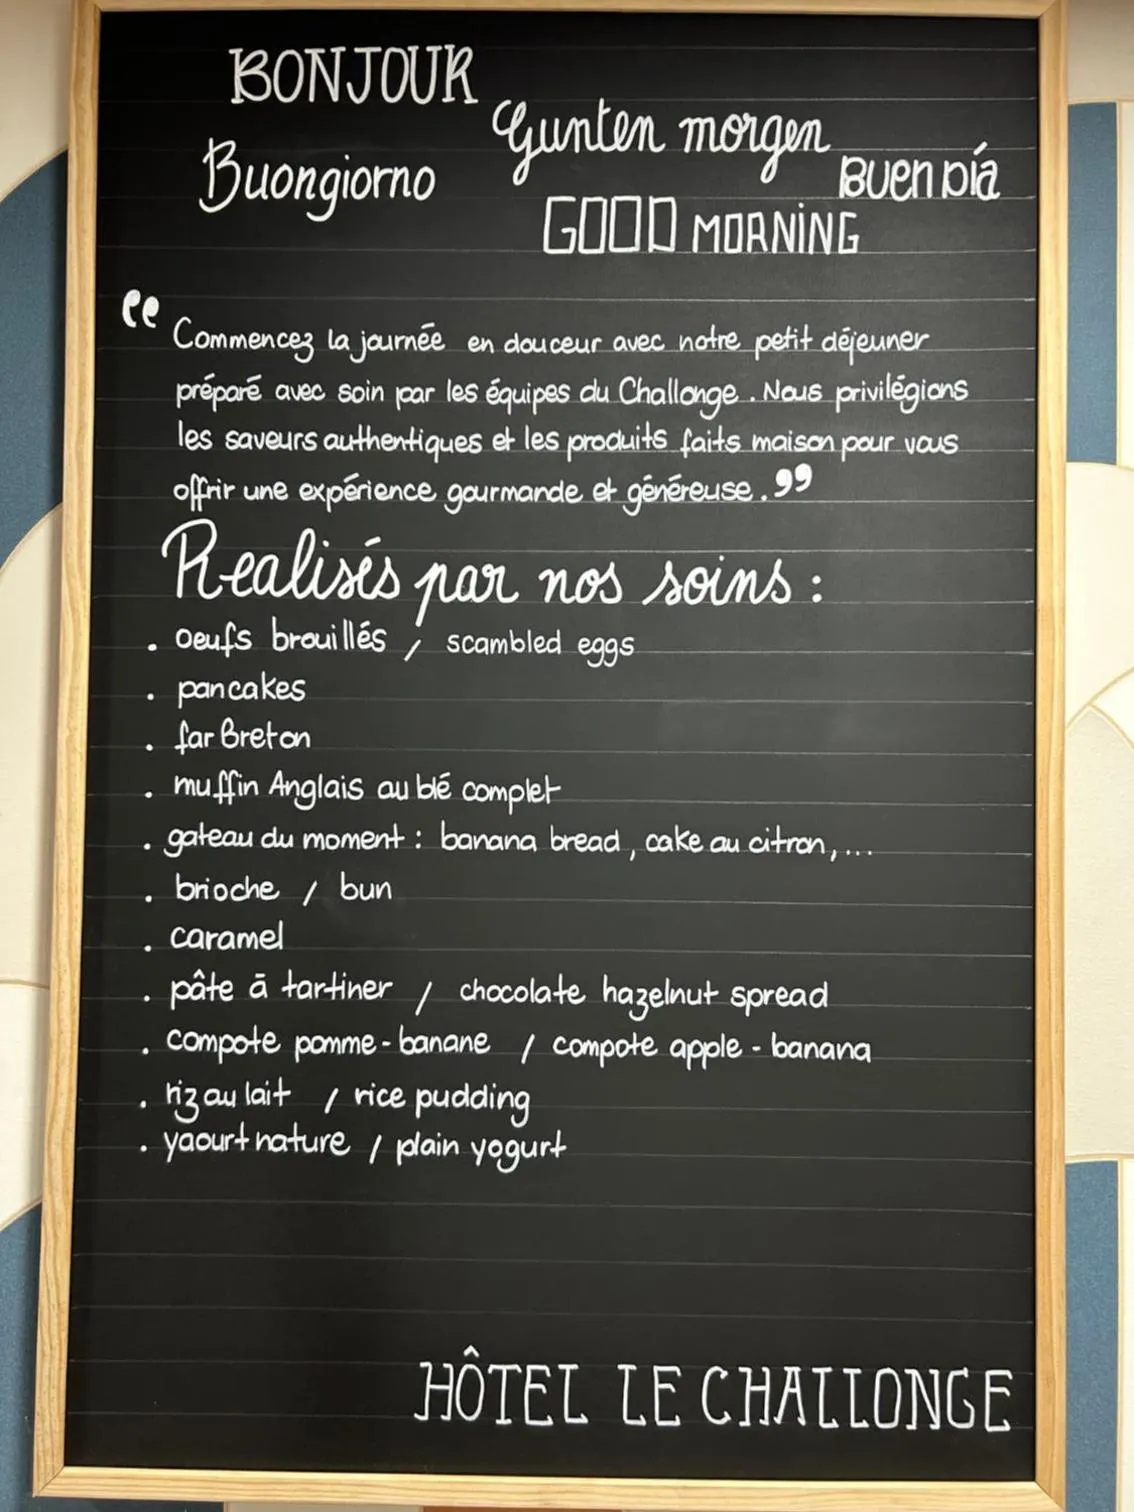 BONJOUR
Gunten morgen
Buongiorno
Buen Día
GOOD MORNING
“Commencez la journée en douceur avec notre petit déjeuner
préparé avec soin par les équipes du Challonge. Nous privilégions
les saveurs authentiques et les produits faits maison pour vous
offrir une expérience gourmande et généreuse.”
Realisés par nos soins :
. oeufs brouillés / scambled eggs
. pancakes
. far Breton
. muffin Anglais au blé complet
. gateau du moment : banana bread, cake au citron,...
. brioche / bun
. caramel
. pâte à tartiner / chocolate hazelnut spread
. compote pomme-banane / compote apple-banana
. riz au lait / rice pudding
. yaourt nature / plain yogurt
HÔTEL LE CHALLONGE